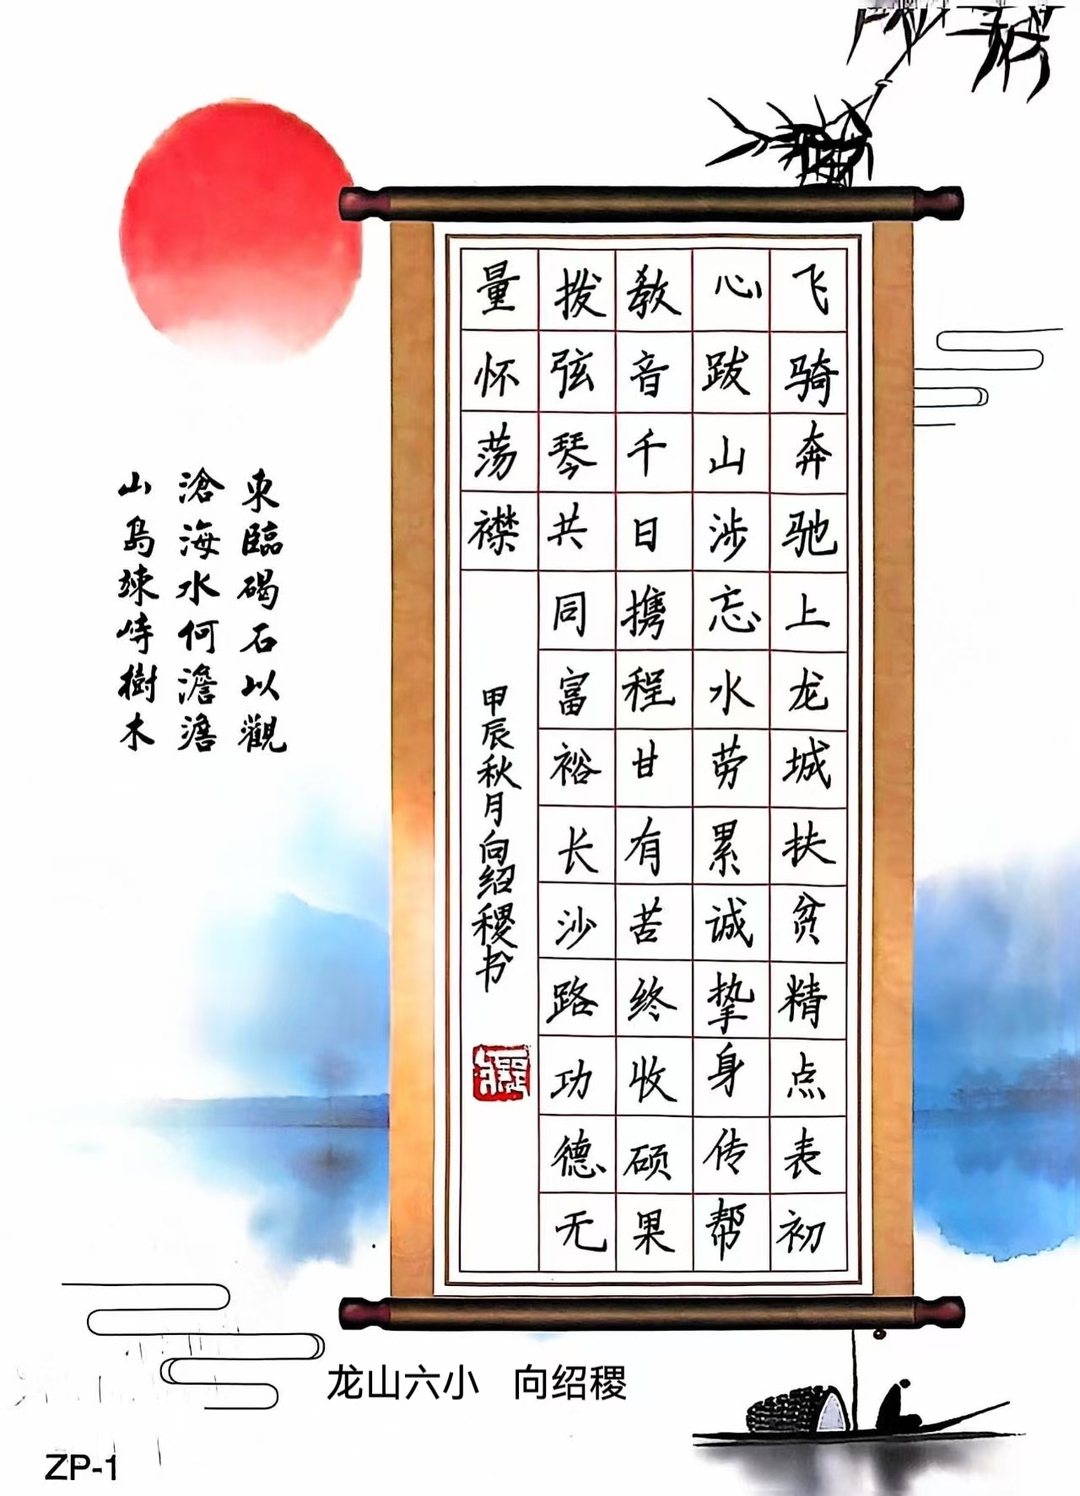 飞骑奔驰上龙城扶贫精点表初
心跋山涉忘水劳累诚挚身传帮
教音千日携程甘有苦终收硕果
拨弦琴共同富裕长沙路功德无
量怀荡襟
甲辰秋月向绍稷书
東臨碣石以觀
滄海水何澹澹
山島竦峙樹木
龙山六小 向绍稷
ZP-1